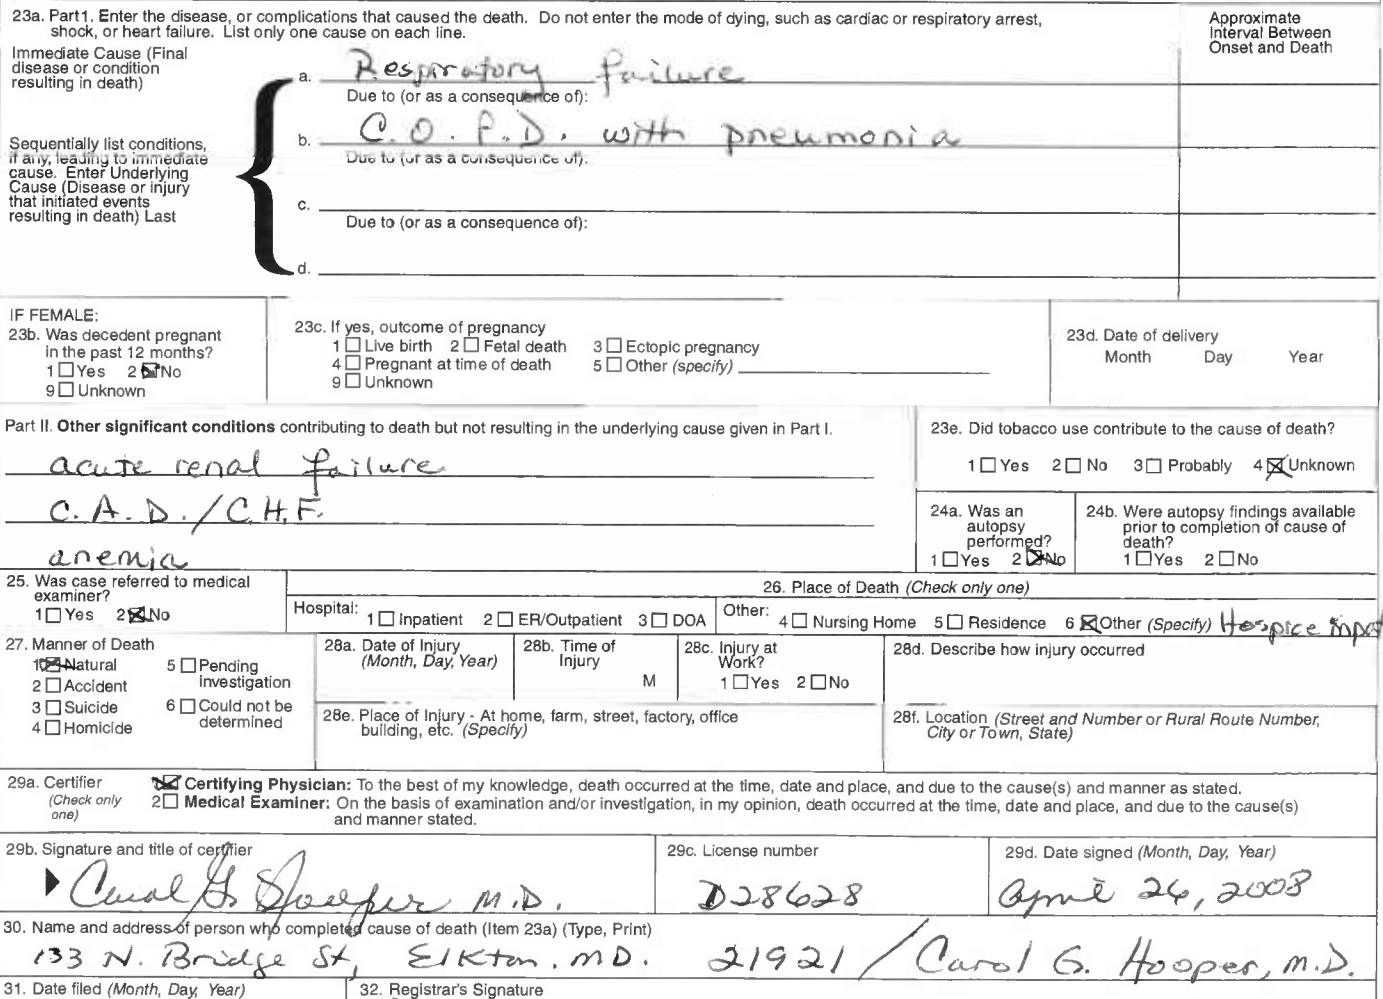 23a. Part1. Enter the disease, or complications that caused the death. Do not enter the mode of dying, such as cardiac or respiratory arrest,
shock, or heart failure. List only one cause on each line.
Approximate
Interval Between
Onset and Death
Immediate Cause (Final
disease or condition
resulting in death)
a. Respiratory failure
Due to (or as a consequence of):
b. C.O.P.D. with pneumonia
Due to (or as a consequence of):
Sequentially list conditions,
if any, leading to immediate
cause. Enter Underlying
Cause (Disease or injury
that initiated events
resulting in death) Last
c.
Due to (or as a consequence of):
d.
IF FEMALE:
23b. Was decedent pregnant
in the past 12 months?
1 Yes 2 No
9 Unknown
23c. If yes, outcome of pregnancy
1 Live birth 2 Fetal death 3 Ectopic pregnancy
4 Pregnant at time of death 5 Other (specify)
9 Unknown
23d. Date of delivery
Month Day Year
Part II. Other significant conditions contributing to death but not resulting in the underlying cause given in Part I.
acute renal failure
C.A.D./C.H.F.
anemia
23e. Did tobacco use contribute to the cause of death?
1 Yes 2 No 3 Probably 4 Unknown
24a. Was an
autopsy
performed?
1 Yes 2 No
24b. Were autopsy findings available
prior to completion of cause of
death?
1 Yes 2 No
25. Was case referred to medical
examiner?
1 Yes 2 No
26. Place of Death (Check only one)
Hospital: 1 Inpatient 2 ER/Outpatient 3 DOA
Other: 4 Nursing Home 5 Residence 6 Other (Specify) Hospice inpat
27. Manner of Death
1 Natural 5 Pending
investigation
2 Accident
3 Suicide 6 Could not be
determined
4 Homicide
28a. Date of Injury
(Month, Day, Year)
28b. Time of
Injury
M
28c. Injury at
Work?
1 Yes 2 No
28d. Describe how injury occurred
28e. Place of Injury - At home, farm, street, factory, office
building, etc. (Specify)
28f. Location (Street and Number or Rural Route Number,
City or Town, State)
29a. Certifier
(Check only
one)
Certifying Physician: To the best of my knowledge, death occurred at the time, date and place, and due to the cause(s) and manner as stated.
2 Medical Examiner: On the basis of examination and/or investigation, in my opinion, death occurred at the time, date and place, and due to the cause(s)
and manner stated.
29b. Signature and title of certifier
Carol G. Hooper M.D.
29c. License number
D28628
29d. Date signed (Month, Day, Year)
April 26, 2008
30. Name and address of person who completed cause of death (Item 23a) (Type, Print)
133 N. Bridge St, Elkton. MD. 21921 / Carol G. Hooper, M.D.
31. Date filed (Month, Day, Year)
32. Registrar's Signature